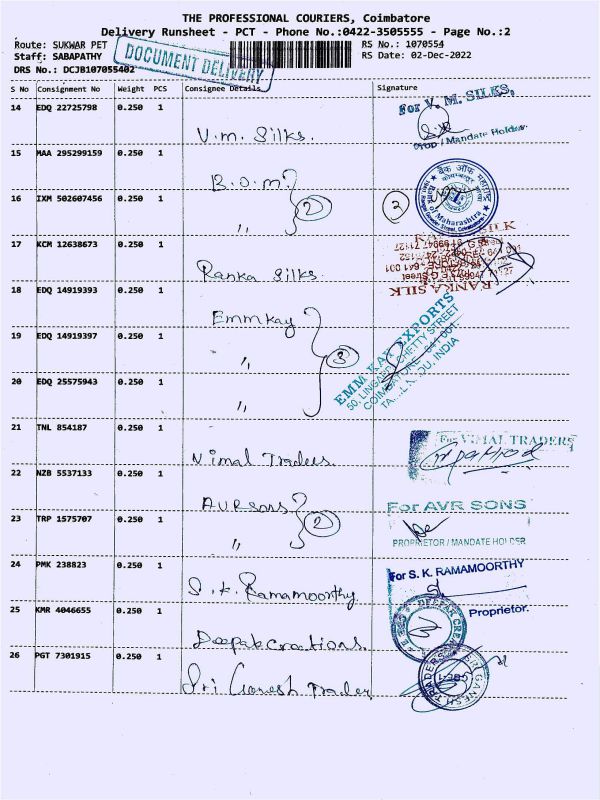 THE PROFESSIONAL COURIERS, Coimbatore
Delivery Runsheet - PCT - Phone No.:0422-3505555 - Page No.:2
Route: SUKWAR PET RS No.: 1070554
Staff: SABAPATHY RS Date: 02-Dec-2022
DRS No.: DCJB107055402
DOCUMENT DELIVERY
S No Consignment No Weight PCS Consignee Details Signature
14 EDQ 22725798 0.250 1
V.m. Silks.
For V. M. SILKS,
Prop / Mandate Holder
15 MAA 295299159 0.250 1
B.O.m.
16 IXM 502607456 0.250 1
" 2 2
बैंक ऑफ महाराष्ट्र
Bank of Maharashtra
17 KCM 12638673 0.250 1
Ranka Silks.
RANKA SILK
18 EDQ 14919393 0.250 1
Emmkay
19 EDQ 14919397 0.250 1
" 3
20 EDQ 25575943 0.250 1
"
EMM KAY EXPORTS
50, LINGAPPA CHETTY STREET
COIMBATORE - 641 001.
INDIA
21 TNL 854187 0.250 1
Vimal Traders.
For VIMAL TRADERS
22 NZB 5537133 0.250 1
AVR sons
23 TRP 1575707 0.250 1
" 2
For AVR SONS
PROPRIETOR / MANDATE HOLDER
24 PMK 238823 0.250 1
S.K. Ramamoorthy.
For S. K. RAMAMOORTHY
Proprietor.
25 KMR 4046655 0.250 1
Deepak Creations.
26 PGT 7301915 0.250 1
Sri Ganesh Trader